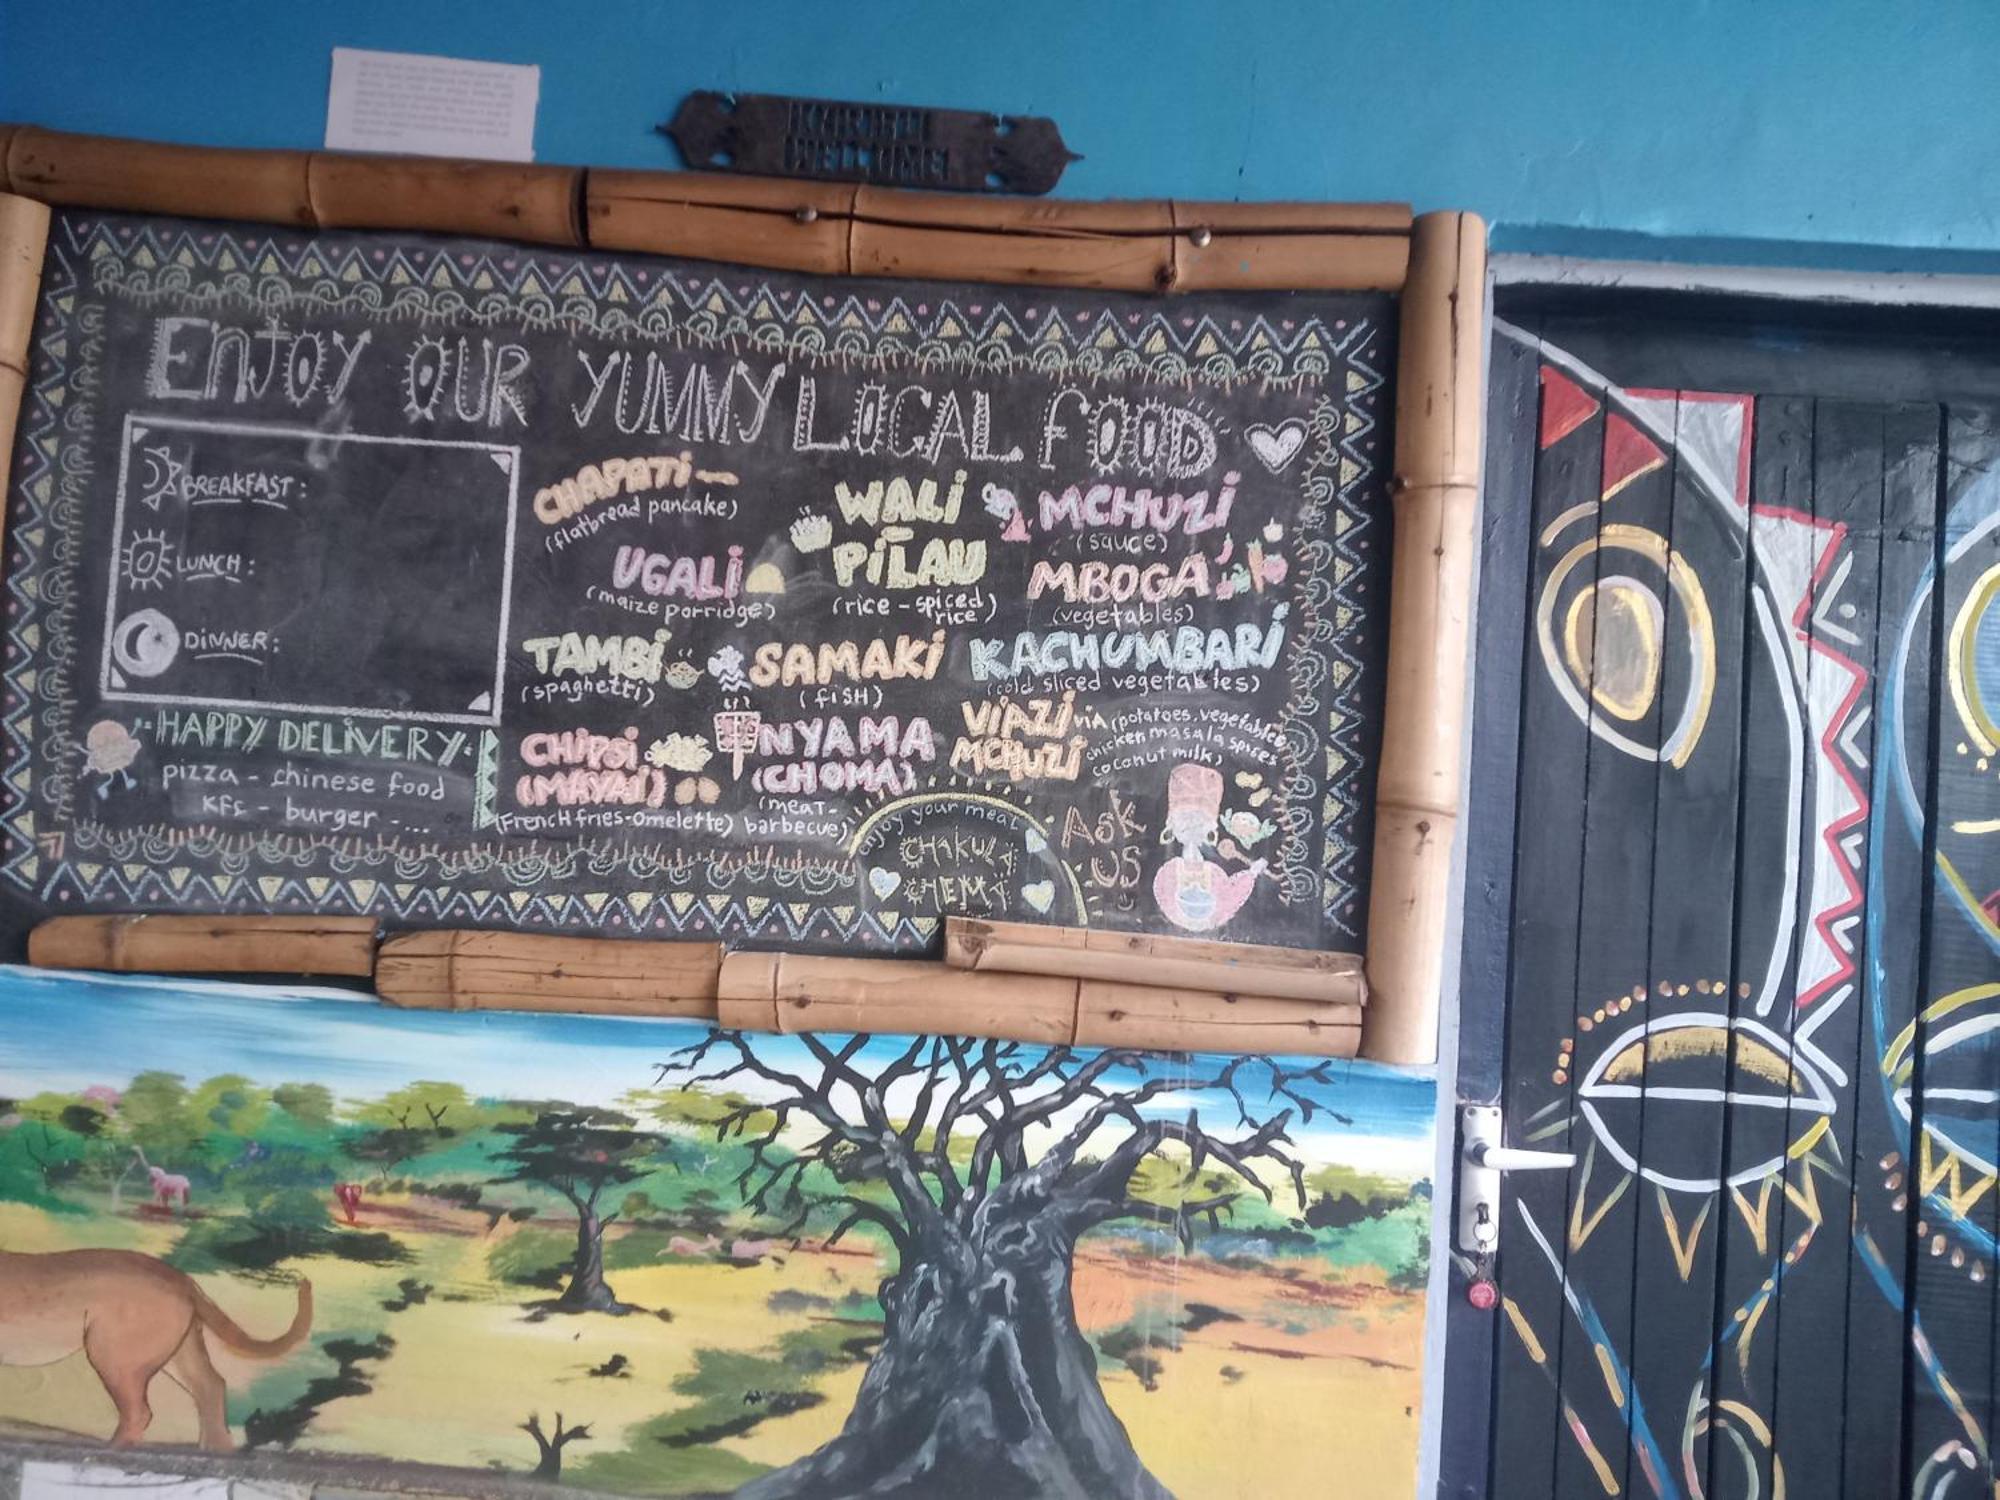 KARIBU
WELCOME!
ENJOY OUR YUMMY LOCAL FOOD
BREAKFAST:
LUNCH:
DINNER:
HAPPY DELIVERY
pizza - chinese food
KFC - burger -...
CHAPATI
(flatbread pancake)
UGALI
(maize porridge)
WALI -
PILAU
(rice - spiced
rice)
MCHUZI
(sauce)
MBOGA
(vegetables)
TAMBI
(spaghetti)
SAMAKI
(fish)
KACHUMBARI
(cold sliced vegetables)
CHIPSI
(MAYAI)
(French fries-omelette)
NYAMA
(CHOMA)
(meat-
barbecue)
VIAZI VIA
MCHUZI
(potatoes, vegetables
chicken masala spices
coconut milk)
enjoy your meal
CHAKULA
CHEMA
ASK
US